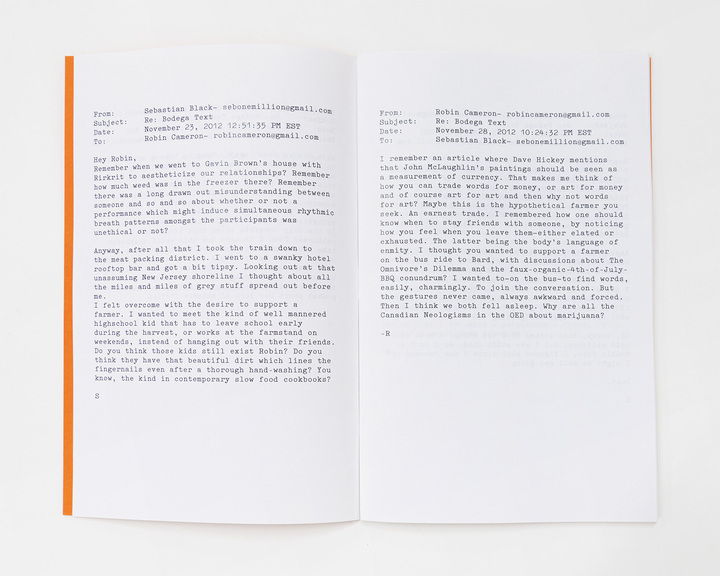 From: Sebastian Black- sebonemillion@gmail.com
Subject: Re: Bodega Text
Date: November 23, 2012 12:51:35 PM EST
To: Robin Cameron- robincameron@gmail.com
Hey Robin,
Remember when we went to Gavin Brown's house with
Rirkrit to aestheticize our relationships? Remember
how much weed was in the freezer there? Remember
there was a long drawn out misunderstanding between
someone and so and so about whether or not a
performance which might induce simultaneous rhythmic
breath patterns amongst the participants was
unethical or not?
Anyway, after all that I took the train down to
the meat packing district. I went to a swanky hotel
rooftop bar and got a bit tipsy. Looking out at that
unassuming New Jersey shoreline I thought about all
the miles and miles of grey stuff spread out before
me.
I felt overcome with the desire to support a
farmer. I wanted to meet the kind of well mannered
highschool kid that has to leave school early
during the harvest, or works at the farmstand on
weekends, instead of hanging out with their friends.
Do you think those kids still exist Robin? Do you
think they have that beautiful dirt which lines the
fingernails even after a thorough hand-washing? You
know, the kind in contemporary slow food cookbooks?
S
From: Robin Cameron- robincameron@gmail.com
Subject: Re: Bodega Text
Date: November 28, 2012 10:24:32 PM EST
To: Sebastian Black- sebonemillion@gmail.com
I remember an article where Dave Hickey mentions
that John McLaughlin's paintings should be seen as
a measurement of currency. That makes me think of
how you can trade words for money, or art for money
and of course art for art and then why not words
for art? Maybe this is the hypothetical farmer you
seek. An earnest trade. I remembered how one should
know when to stay friends with someone, by noticing
how you feel when you leave them-either elated or
exhausted. The latter being the body's language of
enmity. I thought you wanted to support a farmer
on the bus ride to Bard, with discussions about The
Omnivore's Dilemma and the faux-organic-4th-of-July-
BBQ conundrum? I wanted to-on the bus-to find words,
easily, charmingly. To join the conversation. But
the gestures never came, always awkward and forced.
Then I think we both fell asleep. Why are all the
Canadian Neologisms in the OED about marijuana?
-R